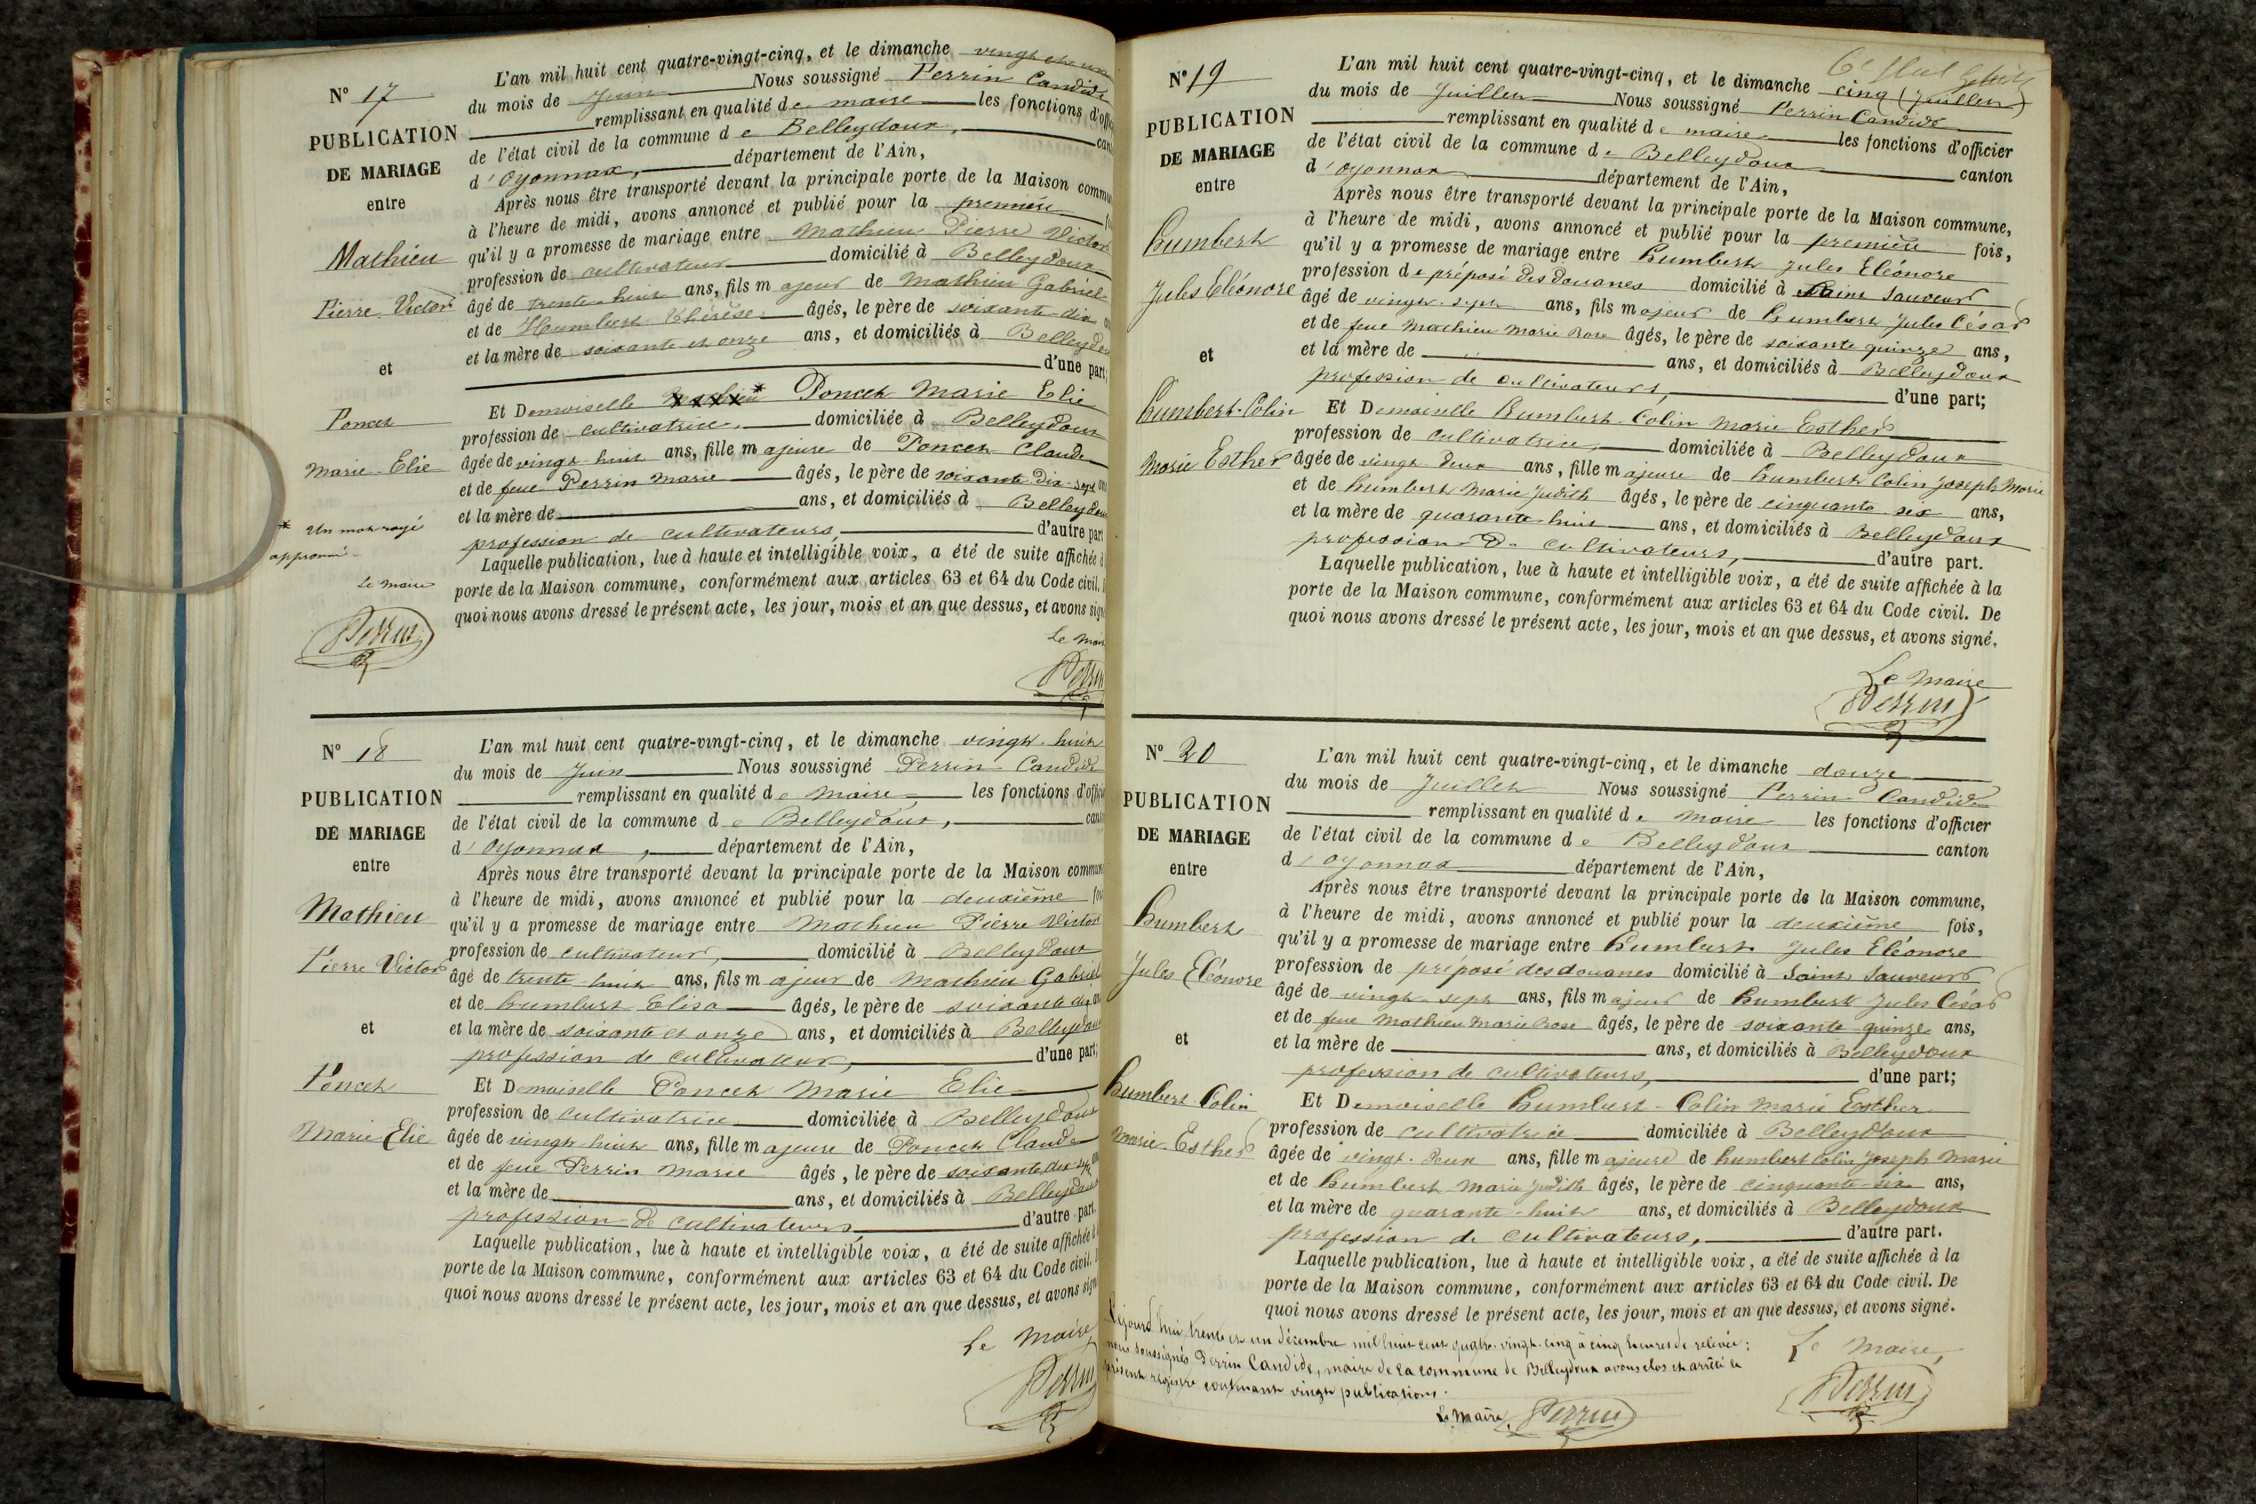 N° 17
PUBLICATION
DE MARIAGE
entre
Mathieu
Pierre Victor
et
Poncet
Marie Elie
* Un mot rayé
approuvé
Le maire
Perrin
L'an mil huit cent quatre-vingt-cinq, et le dimanche vingt et un
du mois de Juin Nous soussigné Perrin Candide
remplissant en qualité de maire les fonctions d'offic
de l'état civil de la commune de Belleydoux, cant
d'Oyonnax, département de l'Ain,
Après nous être transporté devant la principale porte de la Maison commu
à l'heure de midi, avons annoncé et publié pour la première fo
qu'il y a promesse de mariage entre Mathieu Pierre Victor
profession de cultivateur domicilié à Belleydoux
âgé de trente-huit ans, fils majeur de Mathieu Gabriel
et de Humbert Thérèse âgés, le père de soixante-dix an
et la mère de soixante et onze ans, et domiciliés à Belleydou
d'une part;
Et Demoiselle * Poncet Marie Elie
profession de cultivatrice domiciliée à Belleydoux
âgée de vingt-huit ans, fille majeure de Poncet Claude
et de feue Perrin Marie âgés, le père de soixante dix-sept ans
et la mère de ans, et domiciliés à Belleydoux
profession de cultivateurs, d'autre part
Laquelle publication, lue à haute et intelligible voix, a été de suite affichée à
porte de la Maison commune, conformément aux articles 63 et 64 du Code civil.
quoi nous avons dressé le présent acte, les jour, mois et an que dessus, et avons sign
Le Mair
Perrin
N° 18
PUBLICATION
DE MARIAGE
entre
Mathieu
Pierre Victor
et
Poncet
Marie Elie
L'an mil huit cent quatre-vingt-cinq, et le dimanche vingt-huit
du mois de Juin Nous soussigné Perrin Candide
remplissant en qualité de Maire, les fonctions d'offici
de l'état civil de la commune de Belleydoux, canto
d'Oyonnax, département de l'Ain,
Après nous être transporté devant la principale porte de la Maison commune
à l'heure de midi, avons annoncé et publié pour la deuxième foi
qu'il y a promesse de mariage entre Mathieu Pierre Victor
profession de cultivateur, domicilié à Belleydoux
âgé de trente-huit ans, fils majeur de Mathieu Gabriel
et de humbert Elisa âgés, le père de soixante dix an
et la mère de soixante et onze ans, et domiciliés à Belleydoux
profession de cultivateur, d'une part;
Et Demoiselle Poncet Marie Elie
profession de cultivatrice domiciliée à Belleydoux
âgée de vingt-huit ans, fille majeure de Poncet Claude
et de feue Perrin Marie âgés, le père de soixante dix-sept an
et la mère de ans, et domiciliés à Belleydoux
profession de cultivateurs, d'autre part.
Laquelle publication, lue à haute et intelligible voix, a été de suite affichée à
porte de la Maison commune, conformément aux articles 63 et 64 du Code civil.
quoi nous avons dressé le présent acte, les jour, mois et an que dessus, et avons sign
Le Maire,
Perrin
N° 19
PUBLICATION
DE MARIAGE
entre
humbert
Jules Eléonore
et
humbert-Colin
Marie Esther
L'an mil huit cent quatre-vingt-cinq, et le dimanche cinq (juillet)
du mois de Juillet Nous soussigné Perrin Candide
remplissant en qualité de maire les fonctions d'officier
de l'état civil de la commune de Belleydoux canton
d'oyonnax département de l'Ain,
Après nous être transporté devant la principale porte de la Maison commune,
à l'heure de midi, avons annoncé et publié pour la première fois,
qu'il y a promesse de mariage entre humbert Jules Eléonore
profession de préposé des douanes domicilié à Saint Sauveur
âgé de vingt-sept ans, fils majeur de humbert Jules César
et de feue Mathieu Marie Rose âgés, le père de soixante quinze ans,
et la mère de ans, et domiciliés à Belleydoux
profession de cultivateurs, d'une part;
Et Demoiselle humbert-Colin Marie Esther
profession de cultivatrice, domiciliée à Belleydoux
âgée de vingt-deux ans, fille majeure de humbert Colin Joseph Marie
et de humbert Marie Judith âgés, le père de cinquante six ans,
et la mère de quarante-huit ans, et domiciliés à Belleydoux
profession de cultivateurs, d'autre part.
Laquelle publication, lue à haute et intelligible voix, a été de suite affichée à la
porte de la Maison commune, conformément aux articles 63 et 64 du Code civil. De
quoi nous avons dressé le présent acte, les jour, mois et an que dessus, et avons signé.
Le Maire
Perrin
N° 20
PUBLICATION
DE MARIAGE
entre
humbert
Jules Eléonore
et
humbert Colin
Marie-Esther
L'an mil huit cent quatre-vingt-cinq, et le dimanche douze
du mois de Juillet Nous soussigné Perrin Candide
remplissant en qualité de Maire les fonctions d'officier
de l'état civil de la commune de Belleydoux canton
d'oyonnax département de l'Ain,
Après nous être transporté devant la principale porte de la Maison commune,
à l'heure de midi, avons annoncé et publié pour la deuxième fois,
qu'il y a promesse de mariage entre humbert Jules Eléonore
profession de préposé des douanes domicilié à Saint Sauveur
âgé de vingt-sept ans, fils majeur de humbert Jules César
et de feue Mathieu Marie Rose âgés, le père de soixante-quinze ans,
et la mère de ans, et domiciliés à Belleydoux
profession de cultivateurs, d'une part;
Et Demoiselle humbert-Colin Marie Esther
profession de cultivatrice domiciliée à Belleydoux
âgée de vingt-deux ans, fille majeure de humbert Colin Joseph Marie
et de humbert Marie Judith âgés, le père de cinquante-six ans,
et la mère de quarante-huit ans, et domiciliés à Belleydoux
profession de cultivateurs, d'autre part.
Laquelle publication, lue à haute et intelligible voix, a été de suite affichée à la
porte de la Maison commune, conformément aux articles 63 et 64 du Code civil. De
quoi nous avons dressé le présent acte, les jour, mois et an que dessus, et avons signé.
Le Maire,
Perrin
jourd'hui trente et un décembre mil huit cent quatre-vingt-cinq à cinq heures de relevée;
nous soussignés Perrin Candide, maire de la commune de Belleydoux avons clos et arrêté le
présent registre contenant vingt publications.
Le Maire, Perrin